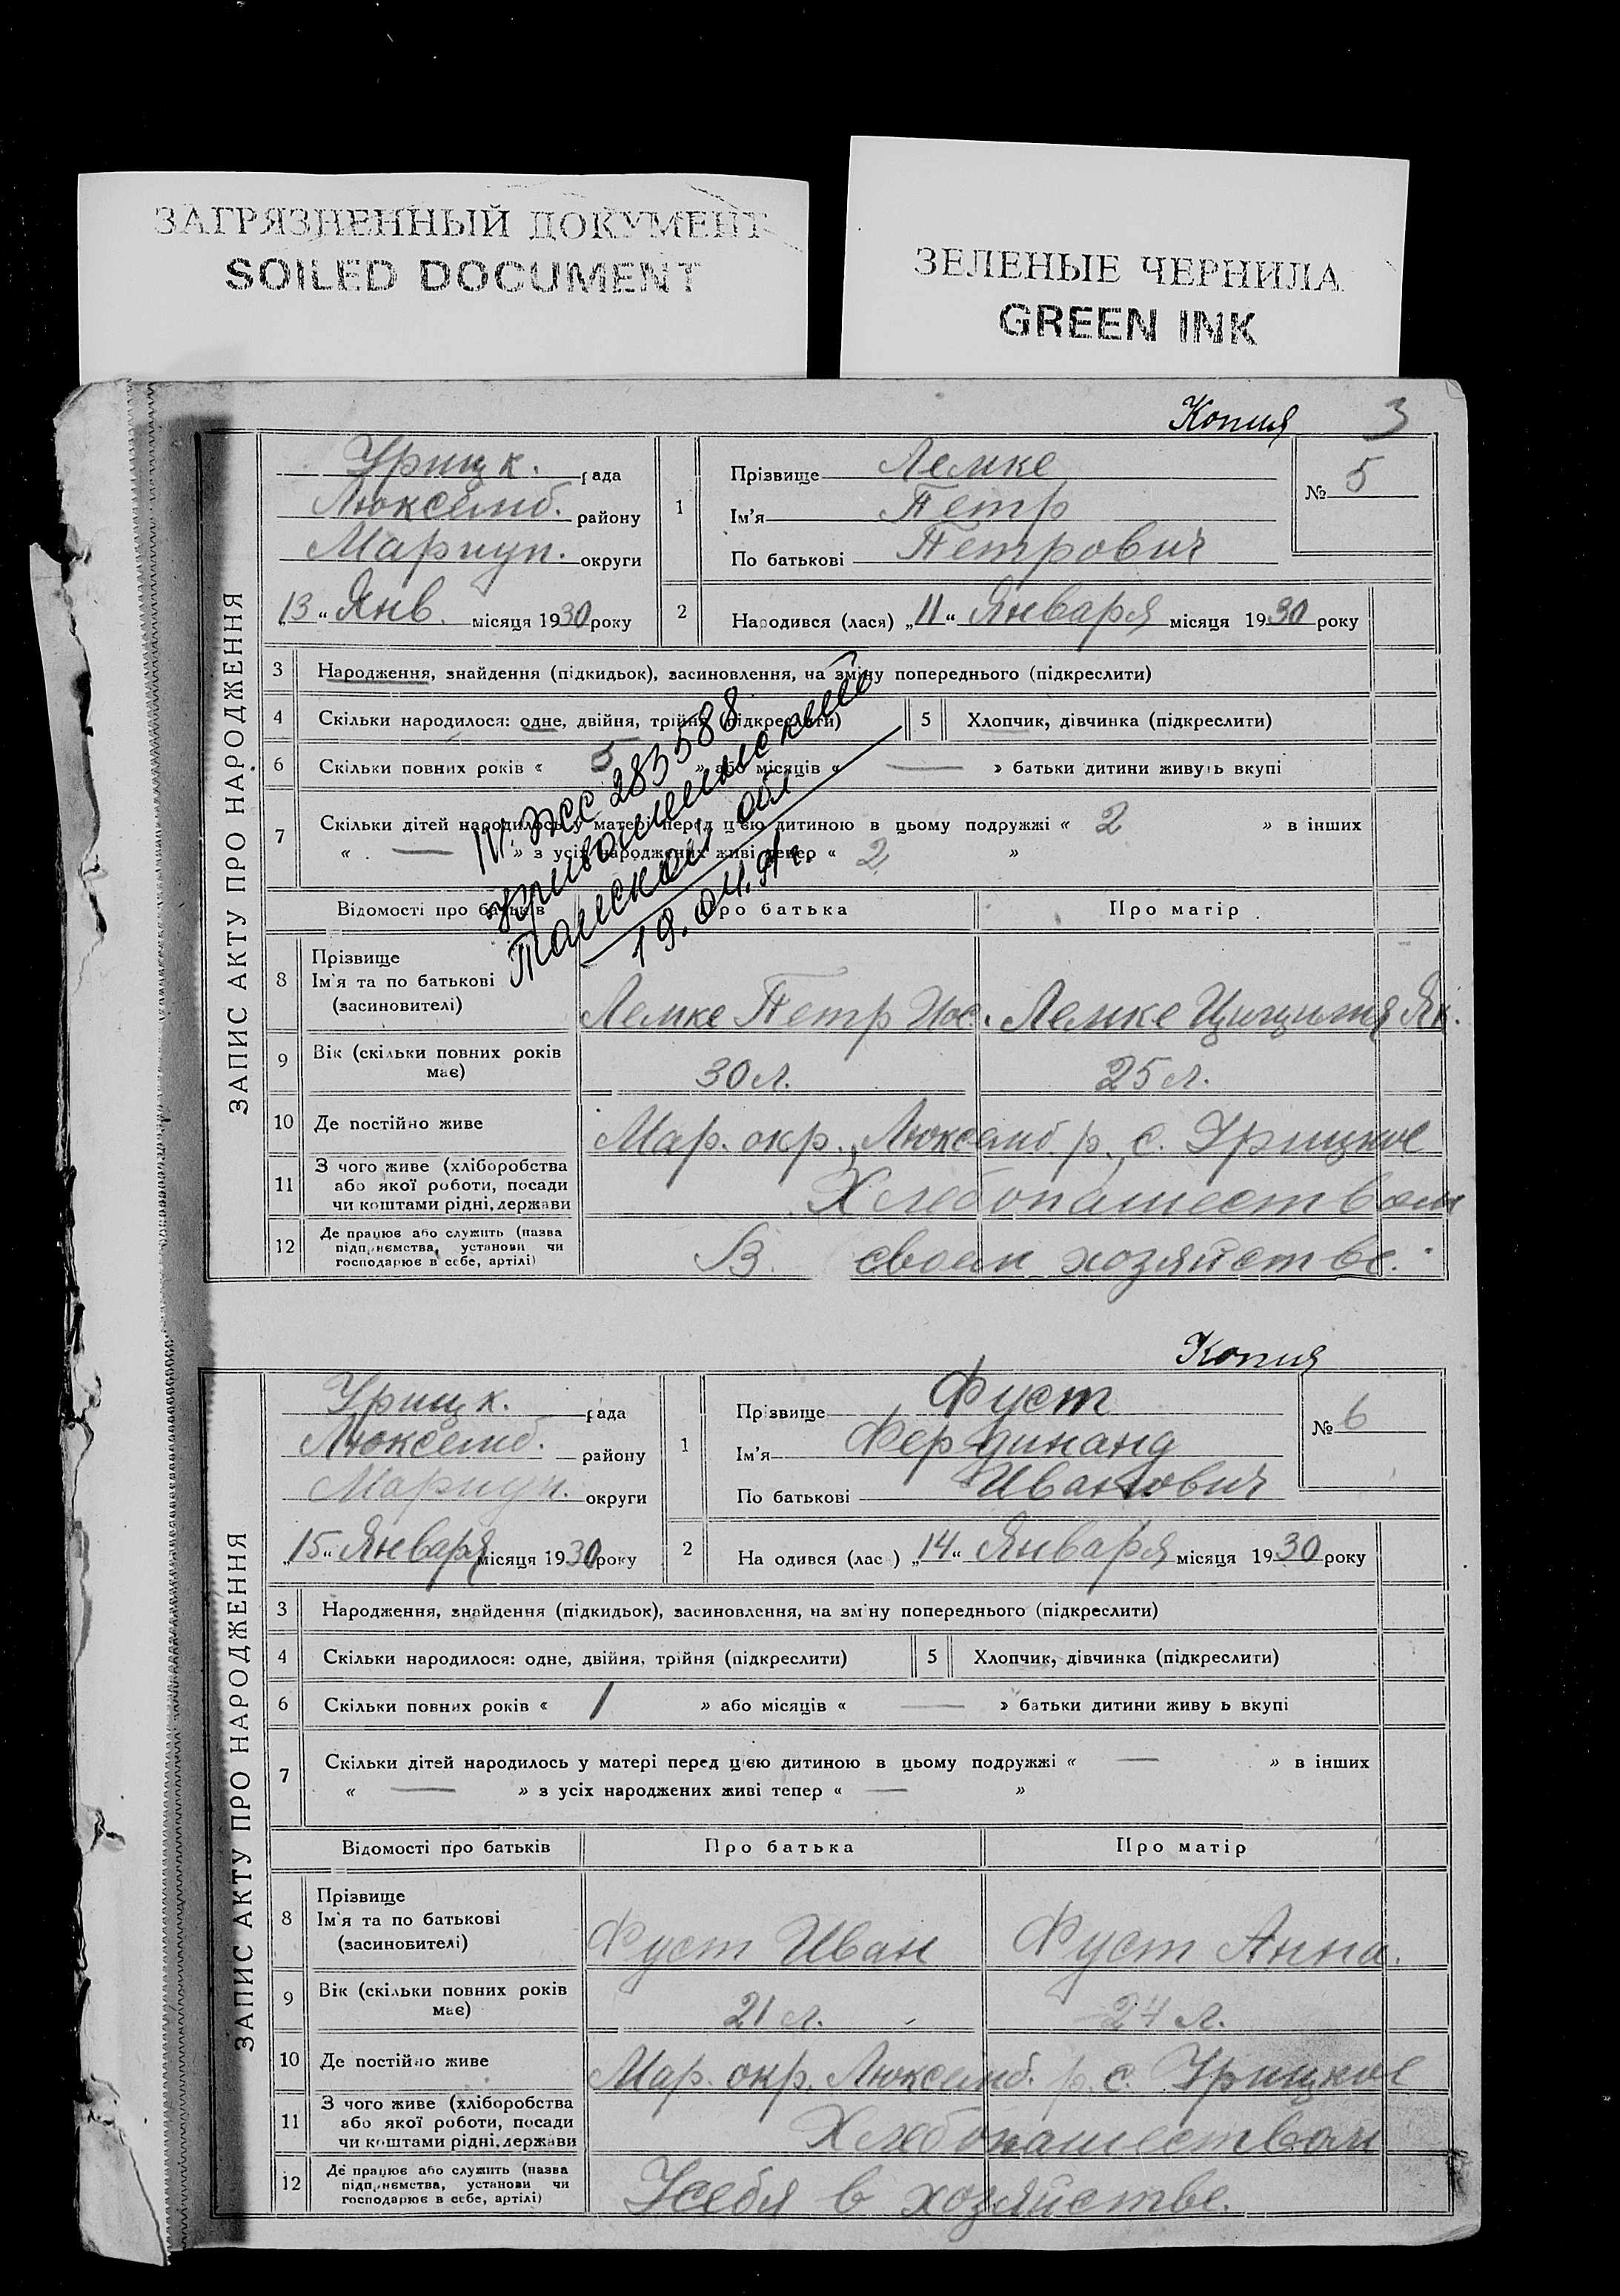 ЗАГРЯЗНЕННЫЙ ДОКУМЕНТ
SOILED DOCUMENT
ЗЕЛЕНЫЕ ЧЕРНИЛА
GREEN INK
Копия 3
ЗАПИС АКТУ ПРО НАРОДЖЕННЯ
Урицк. рада
Люксемб. району
Мариуп. округи
13 “ Янв. місяця 1930 року
1 Прізвище Лемке
Ім’я Петр
По батькові Петрович
№ 5
2 Народився (лася) „11“ Января місяця 1930 року
3 Народження, знайдення (підкидьок), засиновлення, на зміну попереднього (підкреслити)
4 Скільки народилося: одне, двійня, трійня (підкреслити) 5 Хлопчик, дівчинка (підкреслити)
6 Скільки повних років « 5 » або місяців « — » батьки дитини живуть вкупі
7 Скільки дітей народилось у матері перед цією дитиною в цьому подружжі « 2 » в інших
« — » з усіх народжених живі тепер « 2 »
283588
Томской обл
19.04.91г.
Відомості про батьків Про батька Про матір
8 Прізвище
Ім’я та по батькові
(засиновителі)
Лемке Петр Иос. Лемке Цицилия Як.
9 Вік (скільки повних років
має)
30 л. 25 л.
10 Де постійно живе Мар. окр., Люксемб. р., с. Урицкое
11 З чого живе (хліборобства
або якої роботи, посади
чи коштами рідні, держави
Хлебопашеством
12 Де працює або служить (назва
підприємства, установи чи
господарює в себе, артілі)
В своем хозяйстве.
Копия
ЗАПИС АКТУ ПРО НАРОДЖЕННЯ
Урицк. рада
Люксемб. району
Мариуп. округи
„15“ Января місяця 1930 року
1 Прізвище Фуст
Ім’я Фердинанд
По батькові Иванович
№ 6
2 На одився (лас ) „14“ Января місяця 1930 року
3 Народження, знайдення (підкидьок), засиновлення, на зм ну попереднього (підкреслити)
4 Скільки народилося: одне, двійня, трійня (підкреслити) 5 Хлопчик, дівчинка (підкреслити)
6 Скільки повних років « 1 » або місяців « — » батьки дитини живу ь вкупі
7 Скільки дітей народилось у матері перед цією дитиною в цьому подружжі « — » в інших
« — » з усіх народжених живі тепер « — »
Відомості про батьків Про батька Про матір
8 Прізвище
Ім’я та по батькові
(засиновителі)
Фуст Иван Фуст Анна.
9 Вік (скільки повних років
має)
21 л. 24 л.
10 Де постійно живе Мар. окр. Люксемб. р. с. Урицкое
11 З чого живе (хліборобства
або якої роботи, посади
чи коштами рідні, держави
Хлебопашеством
12 Де працює або служить (назва
підприємства, установи чи
господарює в себе, артілі)
У себя в хозяйстве.